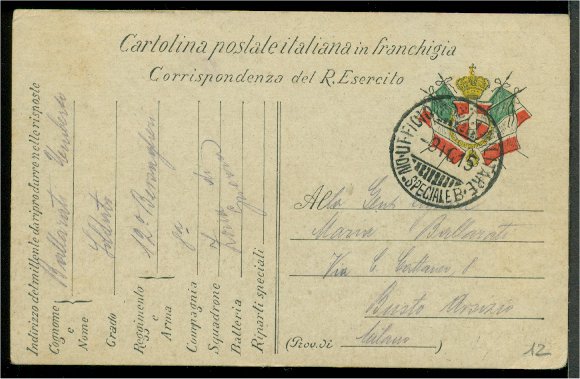 Cartolina postale italiana in franchigia
Corrispondenza del R. Esercito
Indirizzo del mittente da riprodurre nelle risposte
Cognome e Nome Ballarati Umberto
Grado Soldato
Reggimento e Arma 12º Bersaglieri
Compagnia
Squadrone
Batteria
Riparti speciali
UFFICIO
MILITARE
NON SPECIALE B.
Alla Gent.
Maria Ballarati
Via C. 8
Busto Arsizio
(Prov. di Milano)
12